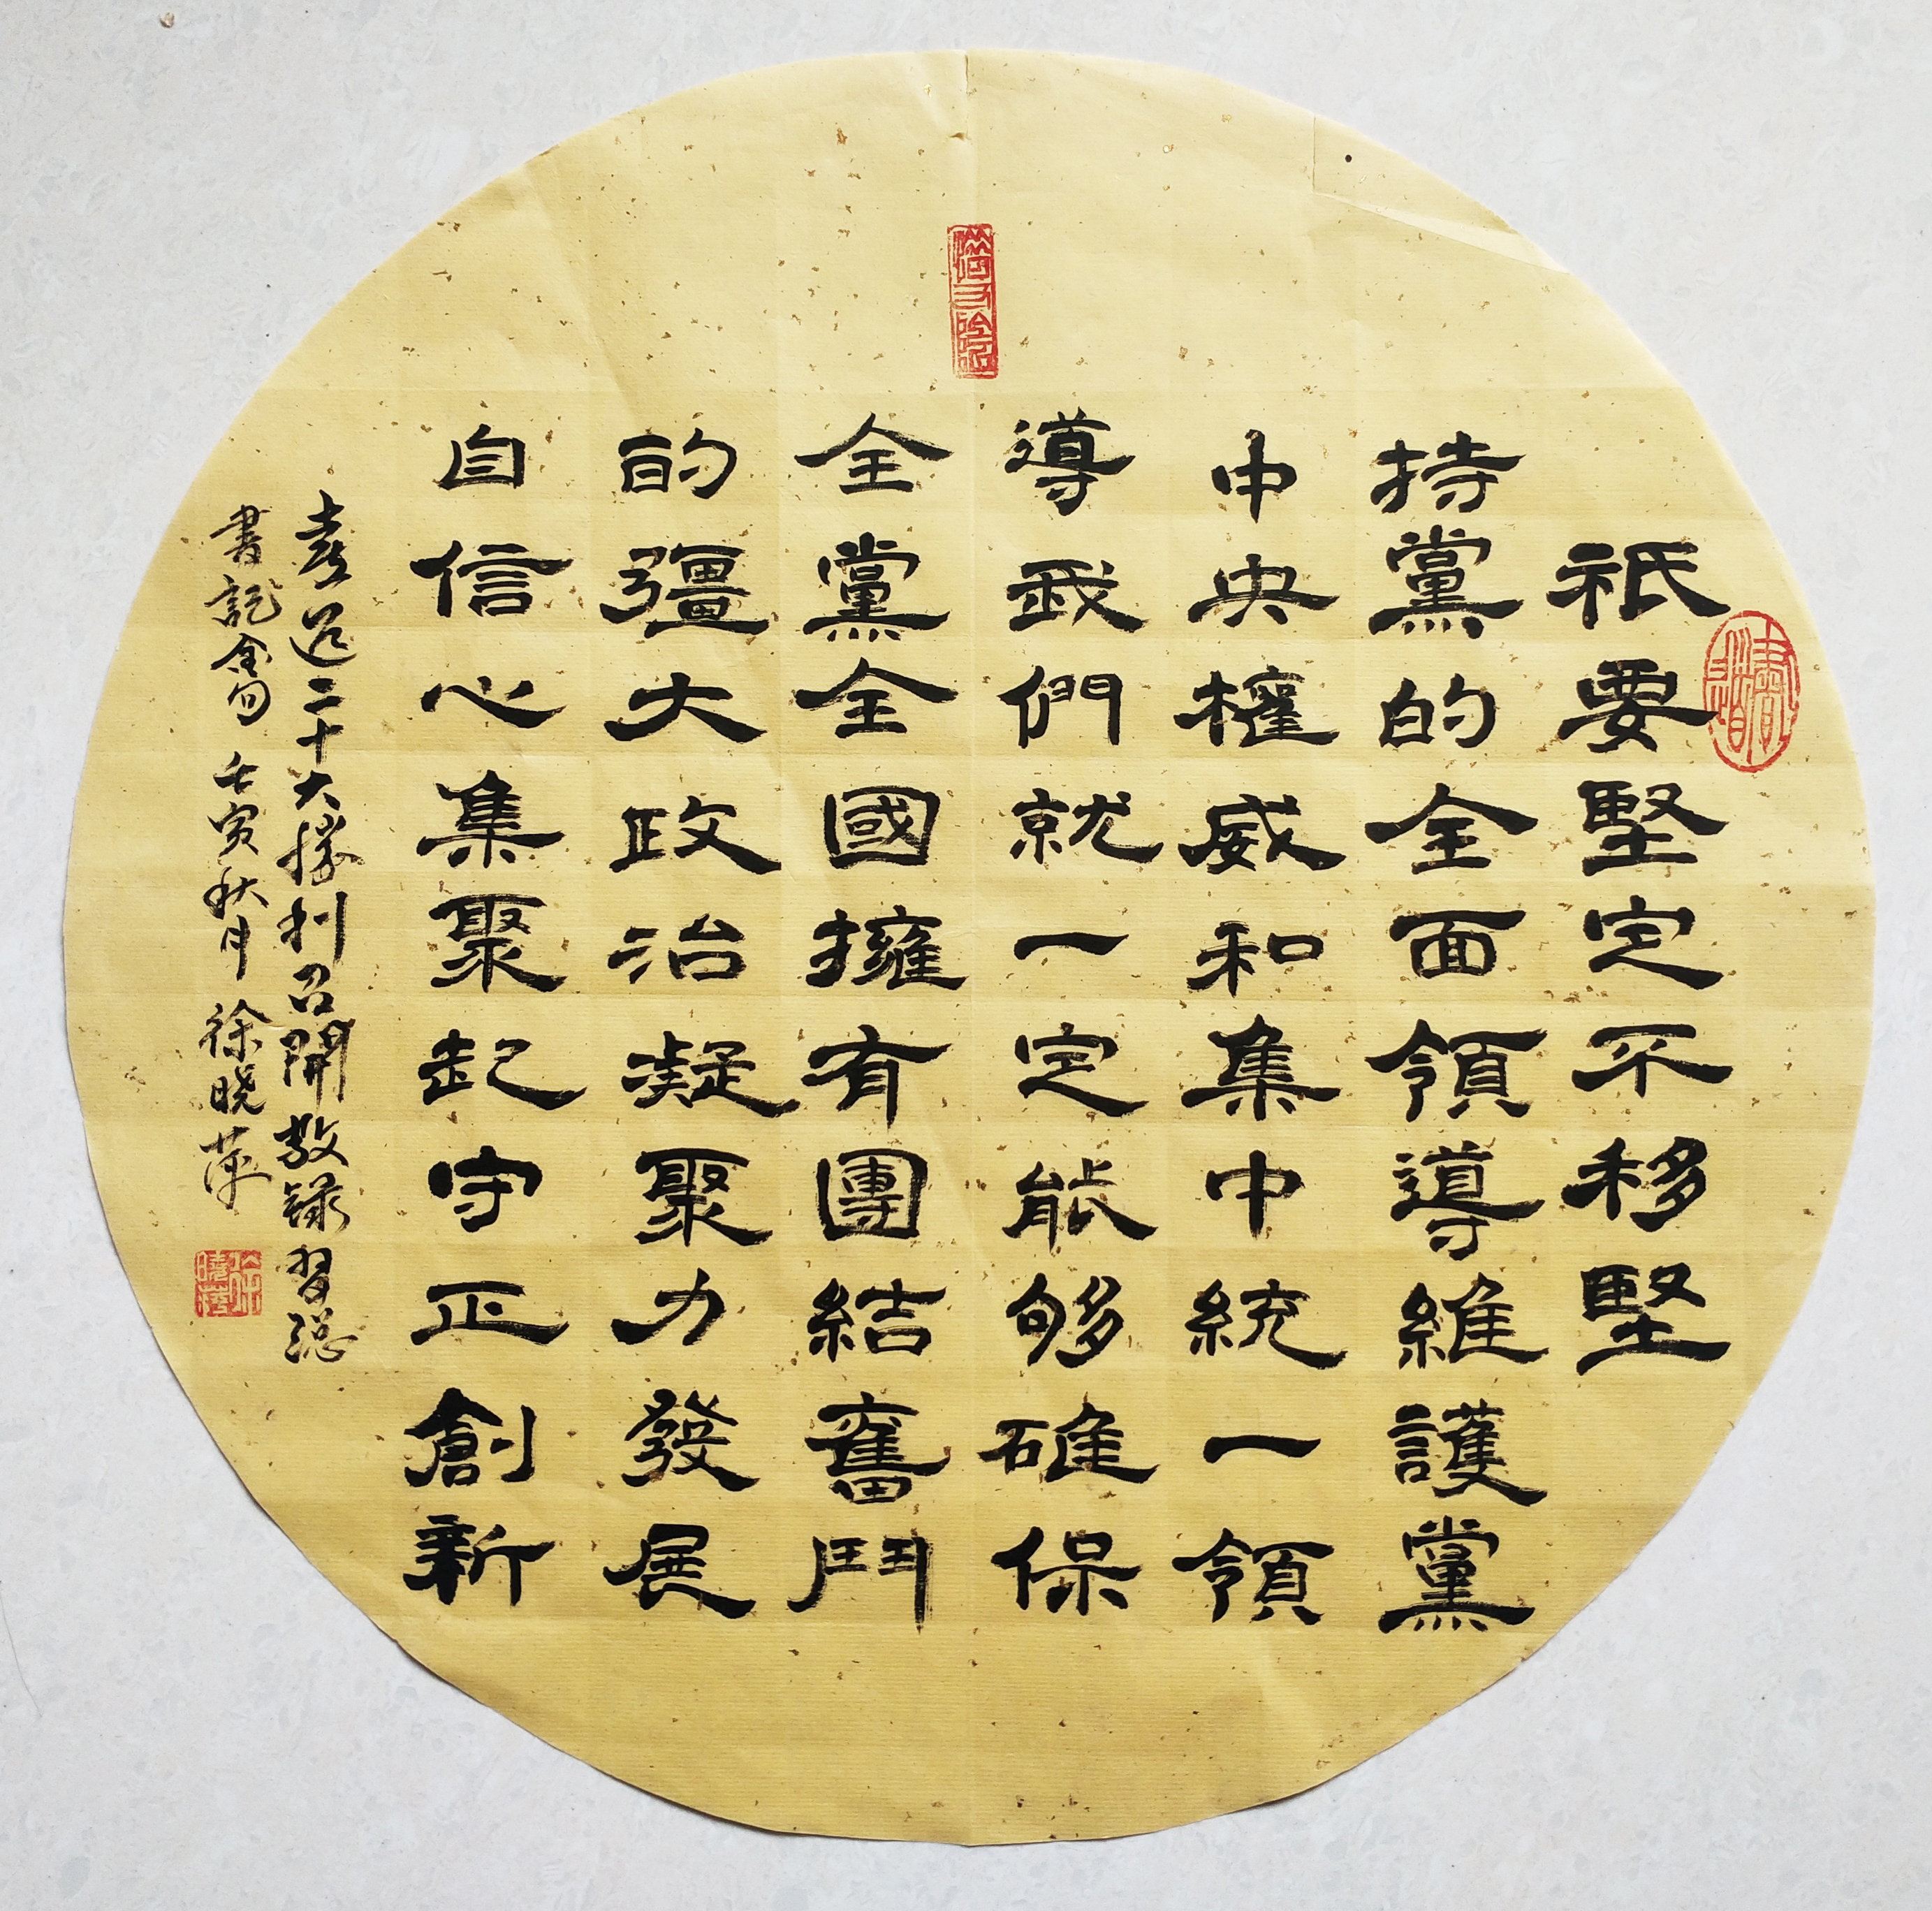 祇要堅定不移堅
持黨的全面領導維護黨
中央權威和集中統一領
導我們就一定能够確保
全黨全國擁有團結奮鬥
的彊大政治凝聚力發展
自信心集聚起守正創新
喜迎二十大勝利召開敬錄習總
書記金句 壬寅秋月 徐曉萍